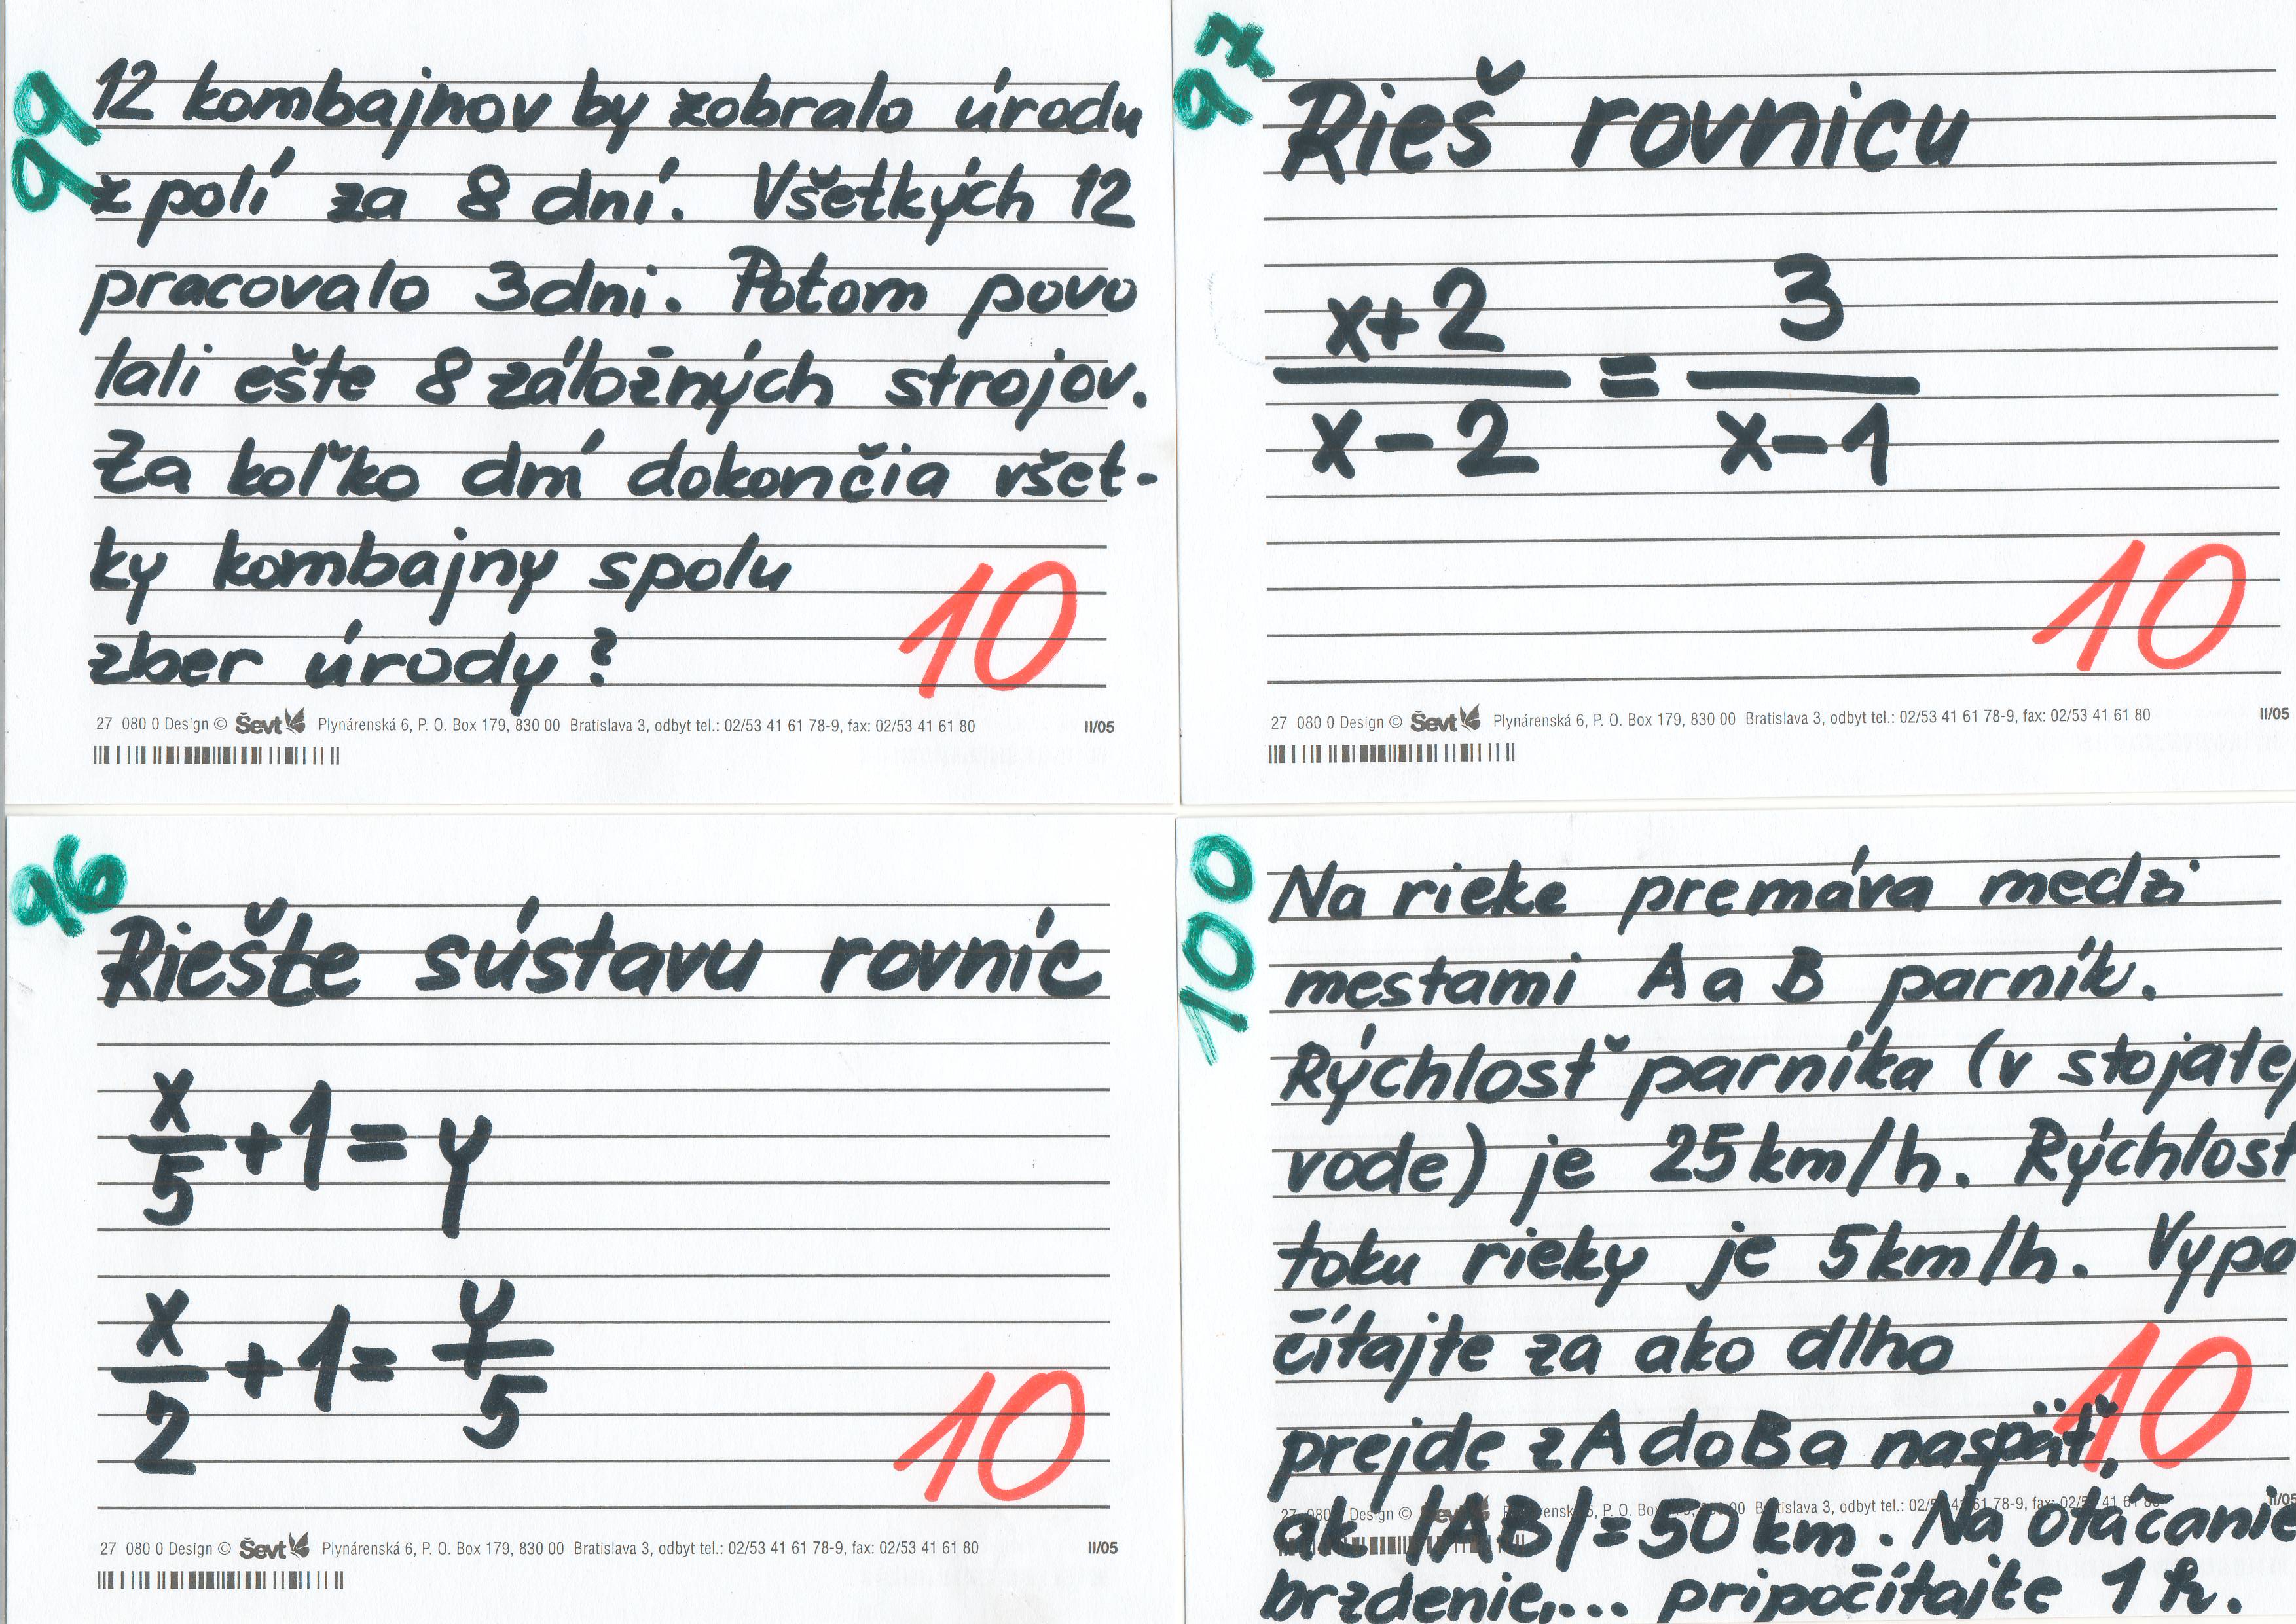 99
12 kombajnov by zobralo úrodu
z polí za 8 dní. Všetkých 12
pracovalo 3dni. Potom povo
lali ešte 8 záložných strojov.
Za koľko dní dokončia všet-
ky kombajny spolu
zber úrody?
10
27 080 0 Design © Ševt Plynárenská 6, P. O. Box 179, 830 00 Bratislava 3, odbyt tel.: 02/53 41 61 78-9, fax: 02/53 41 61 80 II/05
97
Rieš rovnicu
x+2 / x-2 = 3 / x-1
10
27 080 0 Design © Ševt Plynárenská 6, P. O. Box 179, 830 00 Bratislava 3, odbyt tel.: 02/53 41 61 78-9, fax: 02/53 41 61 80 II/05
96
Riešte sústavu rovníc
x/5 + 1 = y
x/2 + 1 = y/5
10
27 080 0 Design © Ševt Plynárenská 6, P. O. Box 179, 830 00 Bratislava 3, odbyt tel.: 02/53 41 61 78-9, fax: 02/53 41 61 80 II/05
100
Na rieke premáva medzi
mestami A a B parník.
Rýchlosť parníka (v stojatej
vode) je 25km/h. Rýchlosť
toku rieky je 5km/h. Vypo
čítajte za ako dlho
prejde z A do B a naspäť,
10
ak |AB|=50 km. Na otáčanie
27 080 Design © Ševt P. O. Box 00 Bratislava 3, odbyt tel.: 02/53 41 61 78-9, fax: 02/53 41 61 80 II/05
brzdenie,... pripočítajte 1 h.